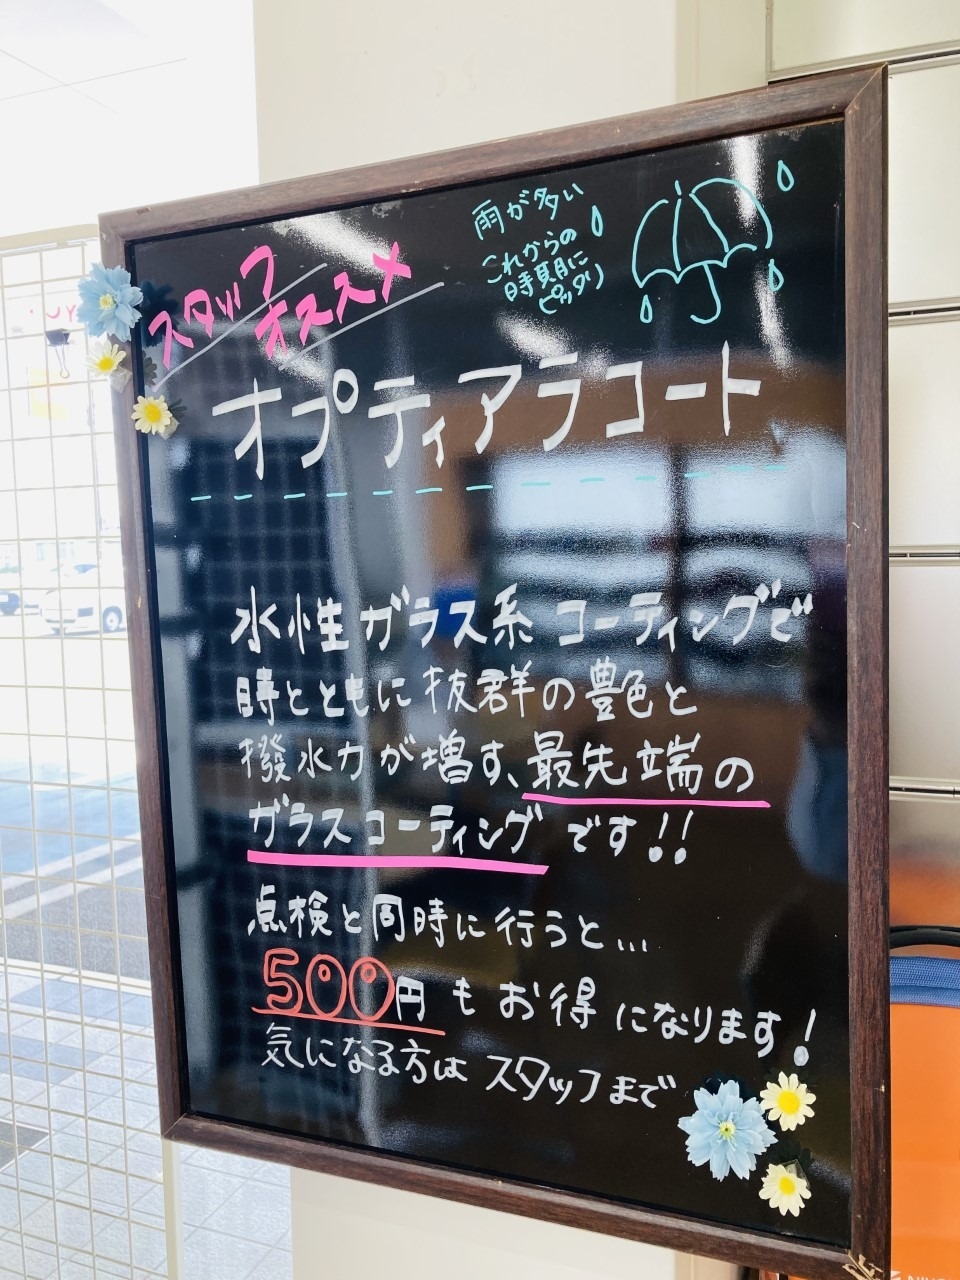 スタッフ
オススメ
雨が多い
これからの
時期に
ピッタリ
オプティアラコート
水性ガラス系コーティングで
時とともに抜群の艶色と
撥水力が増す、最先端の
ガラスコーティングです!!
点検と同時に行うと...
500円もお得になります!
気になる方はスタッフまで